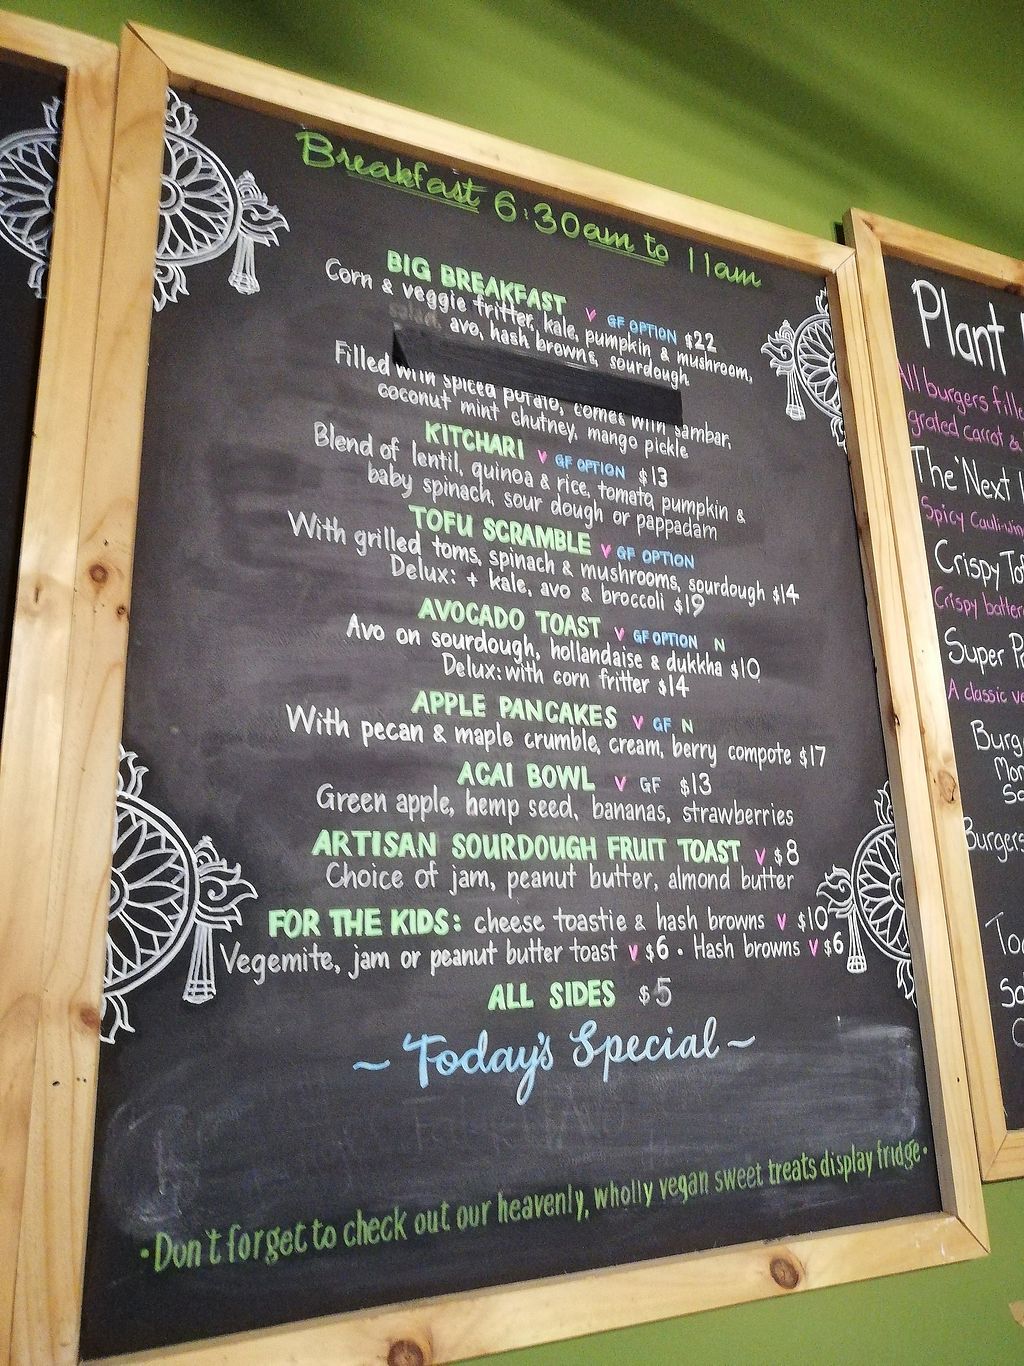 Breakfast 6:30am to 11am
BIG BREAKFAST V GF OPTION $22
Corn & veggie fritter, kale, pumpkin & mushroom,
salad, avo, hash browns, sourdough
Filled with spiced potato, comes with sambar,
coconut mint chutney, mango pickle
KITCHARI V GF OPTION $13
Blend of lentil, quinoa & rice, tomato, pumpkin &
baby spinach, sour dough or pappadam
TOFU SCRAMBLE V GF OPTION
With grilled toms, spinach & mushrooms, sourdough $14
Delux: + kale, avo & broccoli $19
AVOCADO TOAST V GF OPTION N
Avo on sourdough, hollandaise & dukkha $10
Delux: with corn fritter $14
APPLE PANCAKES V GF N
With pecan & maple crumble, cream, berry compote $17
ACAI BOWL V GF $13
Green apple, hemp seed, bananas, strawberries
ARTISAN SOURDOUGH FRUIT TOAST V $8
Choice of jam, peanut butter, almond butter
FOR THE KIDS: cheese toastie & hash browns V $10
Vegemite, jam or peanut butter toast V $6 • Hash browns V $6
ALL SIDES $5
~ Today's Special ~
• Don't forget to check out our heavenly, wholly vegan sweet treats display fridge •
Plant
All burgers fille
grated carrot &
The 'Next
Spicy Cauli-win
Crispy To
Crispy batter
Super P
A classic ve
Burg
Mon
So
Burgers